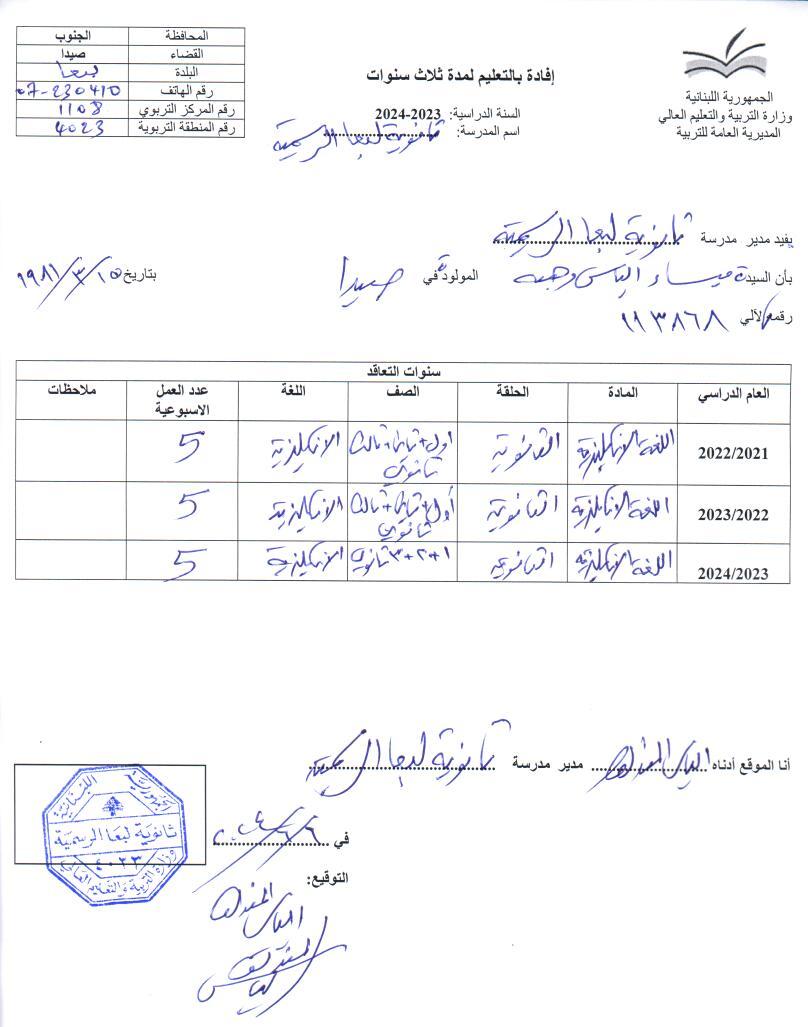 الجمهورية اللبنانية
وزارة التربية والتعليم العالي
المديرية العامة للتربية
إفادة بالتعليم لمدة ثلاث سنوات
السنة الدراسية: 2023-2024
اسم المدرسة: ثانوية لبعا الرسمية
المحافظة الجنوب
القضاء صيدا
البلدة لبعا
رقم الهاتف 07-230410
رقم المركز التربوي 1108
رقم المنطقة التربوية 4023
يفيد مدير مدرسة ثانوية لبعا الرسمية
بأن السيدة ميساء الياس وهبه المولودة في صيدا بتاريخ ١٥/٣/١٩٨١
رقمها الآلي ١١٣٨٦٨
سنوات التعاقد
العام الدراسي المادة الحلقة الصف اللغة عدد العمل الاسبوعية ملاحظات
2022/2021 اللغة الانكليزية الثانوية اول+ثاني+ثالث ثانوي الانكليزية 5
2023/2022 اللغة الانكليزية الثانوية أول+ثاني+ثالث ثانوي الانكليزية 5
2024/2023 اللغة الانكليزية الثانوية ١+٢+٣ ثانوي الانكليزية 5
أنا الموقع أدناه الياس مدير مدرسة ثانوية لبعا الرسمية
في ٦/٦/٢٠٢٤
التوقيع:
الياس
الجمهورية اللبنانية
ثانوية لبعا الرسمية
٤٠٢٣
وزارة التربية والتعليم العالي